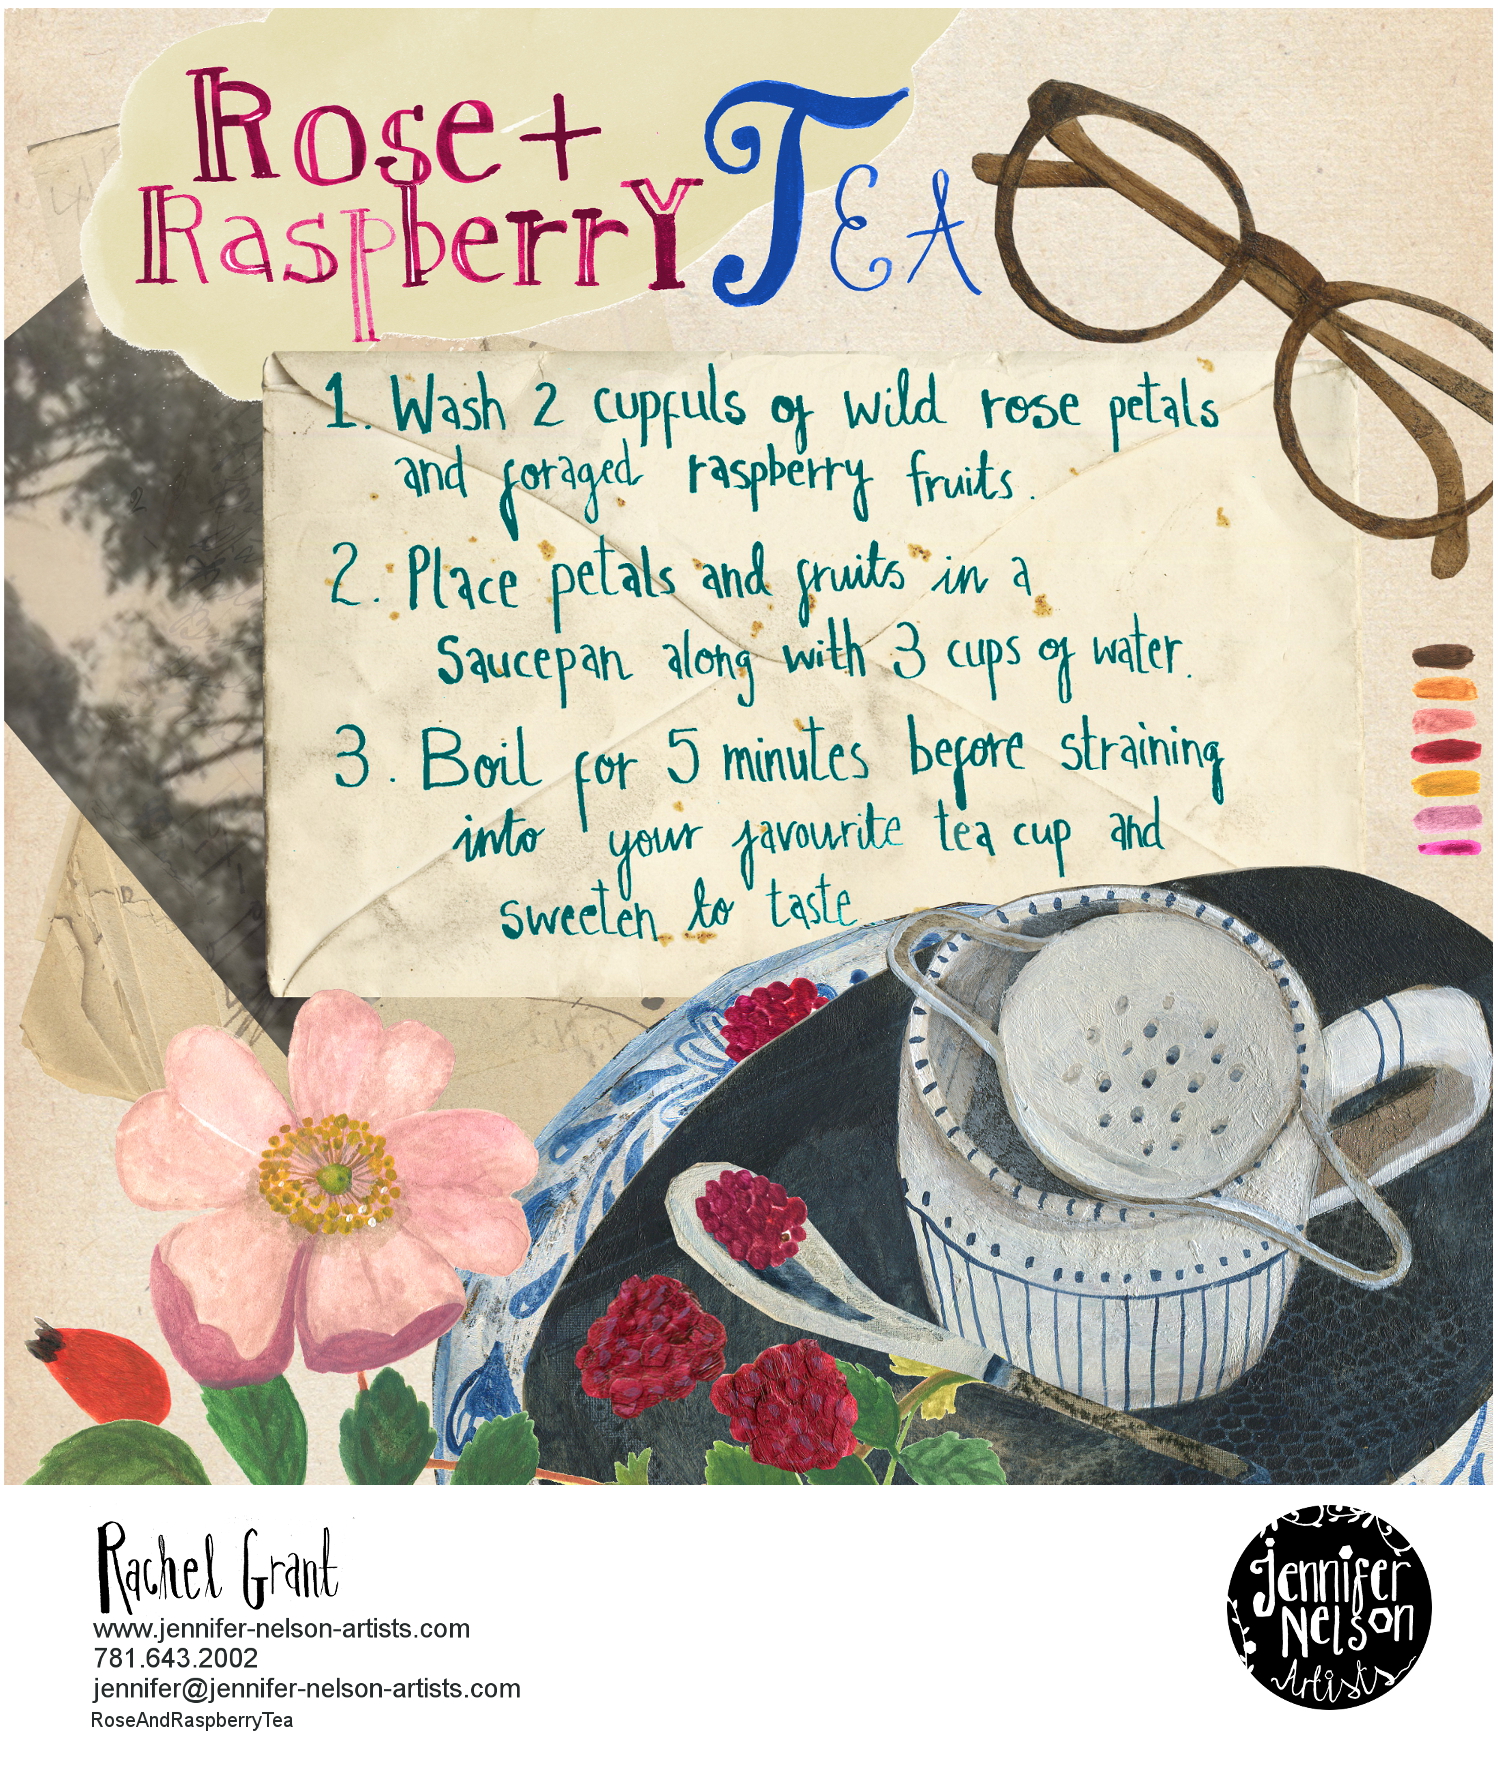 Rose +
Raspberry Tea
1. Wash 2 cupfuls of wild rose petals
and foraged raspberry fruits.
2. Place petals and fruits in a
saucepan along with 3 cups of water.
3. Boil for 5 minutes before straining
into your favourite tea cup and
sweeten to taste
Rachel Grant
www.jennifer-nelson-artists.com
781.643.2002
jennifer@jennifer-nelson-artists.com
RoseAndRaspberryTea
Jennifer
Nelson
Artists